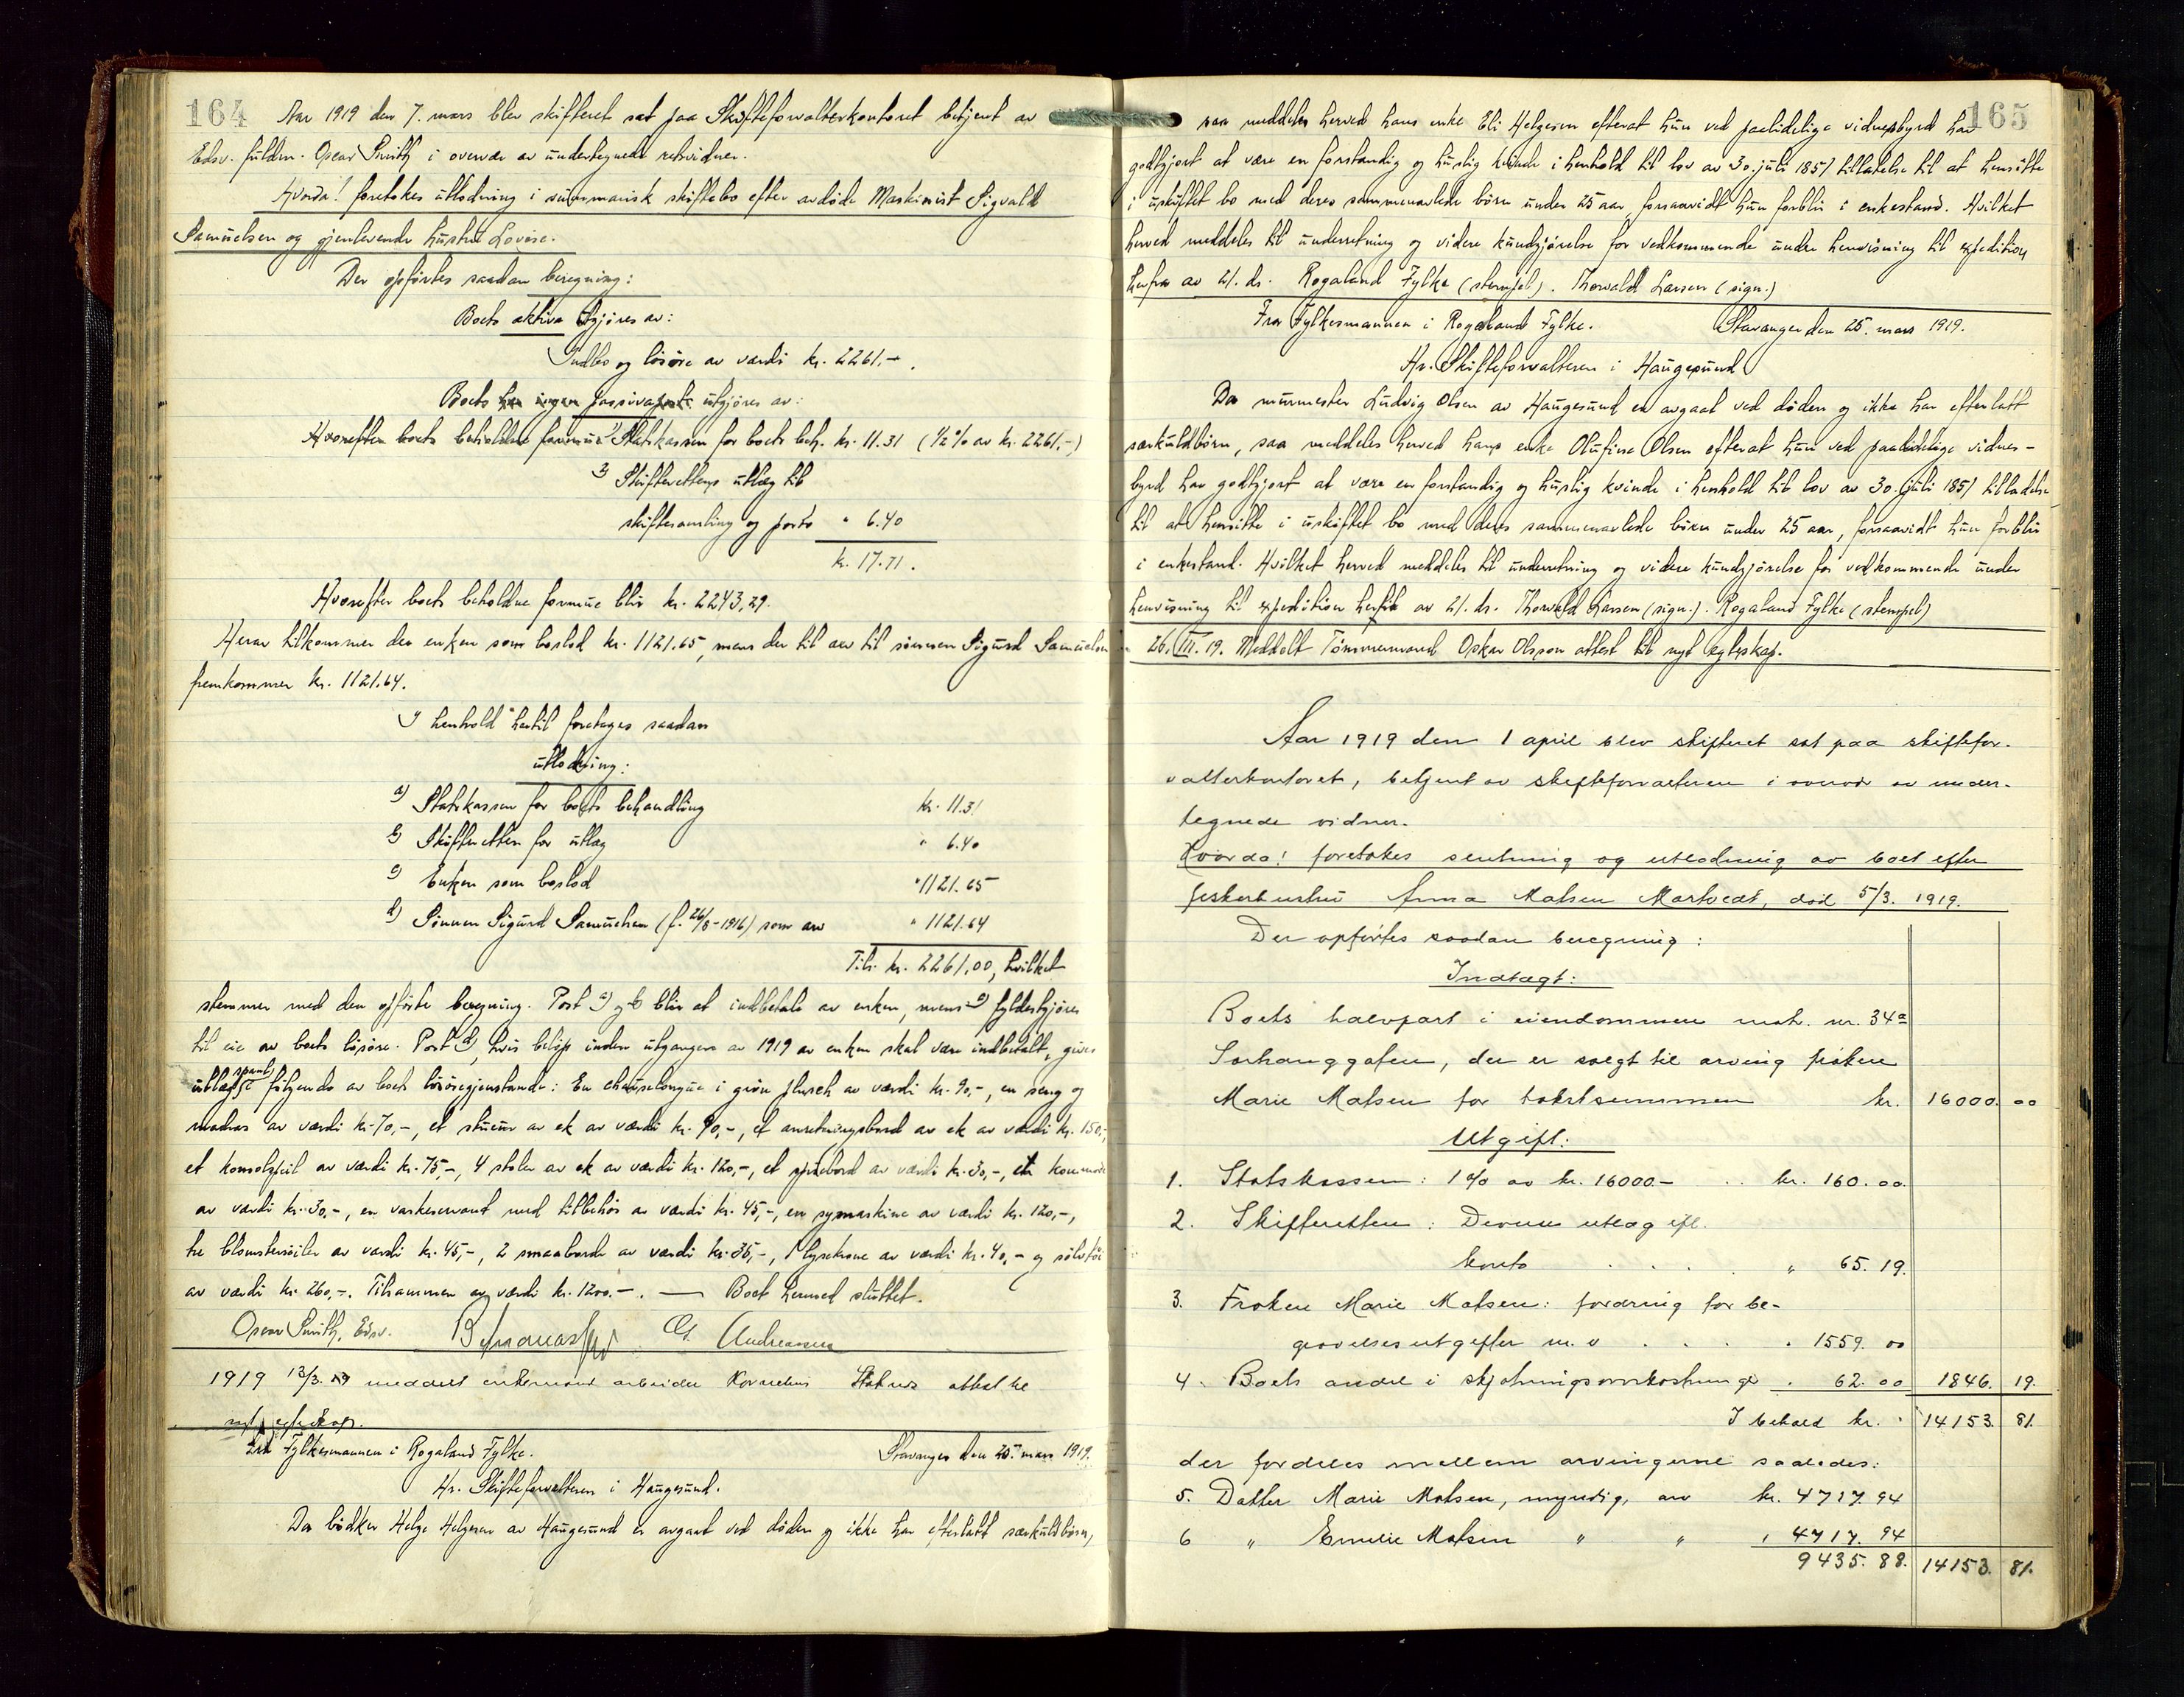 164
Aar 1919 den 7. mars blev skifteret sat paa Skifteforvalterkontoret betjent av
Edsv. fuldm. Oscar Smith i overvær av undertegnede retsvidner.
Hvorda! foretokes utlodning i summarisk skiftebo efter avdøde Maskinist Sigvald
Samuelsen og gjenlevende hustru Lovise.
Der opførtes saadan beregning:
Boets aktiva utgjøres av:
Indbo og løsøre av værdi kr. 2261.-.
Boets har ingen passiva utgjøres av:
Hvorefter boets beholdne formue 1) Statskassen for boets beh. kr. 11.31 (1/2 % av kr. 2261.-)
2) Skifterettens utlæg til
skiftesamling og porto " 6.40
kr. 17.71.
Hvorefter boets beholdne formue blir kr. 2243,29.
Herav tilkommer der enken som boslod kr. 1121.65, mens der til arv til sønnen Sigurd Samuelsen
fremkommer kr. 1121.64.
I henhold hertil foretages saadan
utlodning:
a) Statskassen for boets behandling kr. 11.31
b) Skifteretten for utlæg " 6.40
c) Enken som boslod " 1121.65
d) Sønnen Sigurd Samuelsen (f. 26/8-1916) som arv " 1121.64
Tils. kr. 2261,00, hvilket
stemmer med den opførte beregning. Post a) og b blir at indbetale av enken, mens c) fyldestgjøres
til eie av boets løsøre. Post d), hvis beløp inden utgangen av 1919 av enken skal være indbetalt, gives
utlæg pant i følgende av boets løsøregjenstande: En chaiselongue i grøn plusch av værdi kr. 90,-, en seng og
madras av værdi kr. 70,-, et stueur av ek av værdi kr. 90,-, et anretningsbord av ek av værdi kr. 150,-,
et konsolspeil av værdi kr. 75,-, 4 stoler av ek av værdi kr. 120,-, et spisebord av værdi kr. 30,-, en kommode
av værdi kr. 30,-, en vaskeservant med tilbehør av værdi kr. 45,-, en symaskine av værdi kr. 120,-,
tre blomstersøiler av værdi kr. 45,-, 2 smaaborde av værdi kr. 35,-, 1 lysekrone av værdi kr. 40,- og sølvtøi
av værdi kr. 260,-. Tilsammen av værdi kr. 1200.-. — Boet hermed sluttet.
Oscar Smith, Edsv. Andreassen
1919 13/3. meddelt enkemand arbeider Kornelius attest til
nyt egteskap.
Fra Fylkesmannen i Rogaland Fylke. Stavanger den 25. mars 1919.
Hr. Skifteforvalteren i Haugesund.
Da bødker Helge Helgesen av Haugesund er avgaat ved døden og ikke har efterlatt særkuldbørn,
165
saa meddeles herved hans enke Eli Helgesen efterat hun ved paalidelige vidnesbyrd har
godtgjort at være en forstandig og huslig kvinde i henhold til lov av 30. juli 1851 tillatelse til at hensitte
i uskiftet bo med deres sammenavlede børn under 25 aar, forsaavidt hun forblir i enkestand. Hvilket
herved meddeles til underretning og videre kundgjørelse for vedkommende under henvisning til expedition
herfra av 21. ds. Rogaland Fylke (stempel). Thorvald Larsen (sign.)
Fra Fylkesmannen i Rogaland Fylke. Stavanger den 25. mars 1919.
Hr. Skifteforvalteren i Haugesund
Da murmester Ludvig Olsen av Haugesund er avgaat ved døden og ikke har efterlatt
særkuldbørn, saa meddeles herved hans enke Olufine Olsen efterat hun ved paalidelige vidnes-
byrd har godtgjort at være en forstandig og huslig kvinde i henhold til lov av 30. juli 1851 tilladelse
til at hensitte i uskiftet bo med deres sammenavlede børn under 25 aar, forsaavidt hun forblir
i enkestand. Hvilket herved meddeles til underretning og videre kundgjørelse for vedkommende under
henvisning til expedition herfra av 21. ds. Thorvald Larsen (sign.). Rogaland Fylke (stempel)
26. III. 19. Meddelt Tømmermand Oskar Olsson attest til nyt egteskap.
Aar 1919 den 1 april blev skifteret sat paa skiftefor-
valterkontoret, betjent av skifteforvalteren i overvær av under-
tegnede vidner.
Hvorda! foretokes slutning og utlodning av boet efter
fiskerhustru Anna Matsen Mortvedt, død 5/3. 1919.
Der opførtes saadan beregning:
Indtægt:
Boets halvpart i eiendommen matr. nr. 34a
Sørhauggaten, der er solgt til arving frøken
Marie Matsen for takstsummen kr. 16000.00
Utgift:
1. Statskassen: 1 % av kr. 16000- . . kr. 160.00.
2. Skifteretten: Dennes utlæg ifl.
konto . . . . " 65.19.
3. Frøken Marie Matsen: fordring for be-
gravelsesutgifter m. v . . . . 1559.00
4. Boets andel i skjøtningsomkostninger . 62.00 1846.19.
I behold kr. 14153.81.
der fordeles mellem arvingerne saaledes:
5. Datter Marie Matsen, myndig, arv kr. 4717.94
6 " Emelie Matsen " " " 4717.94
9435.88. 14153.81.